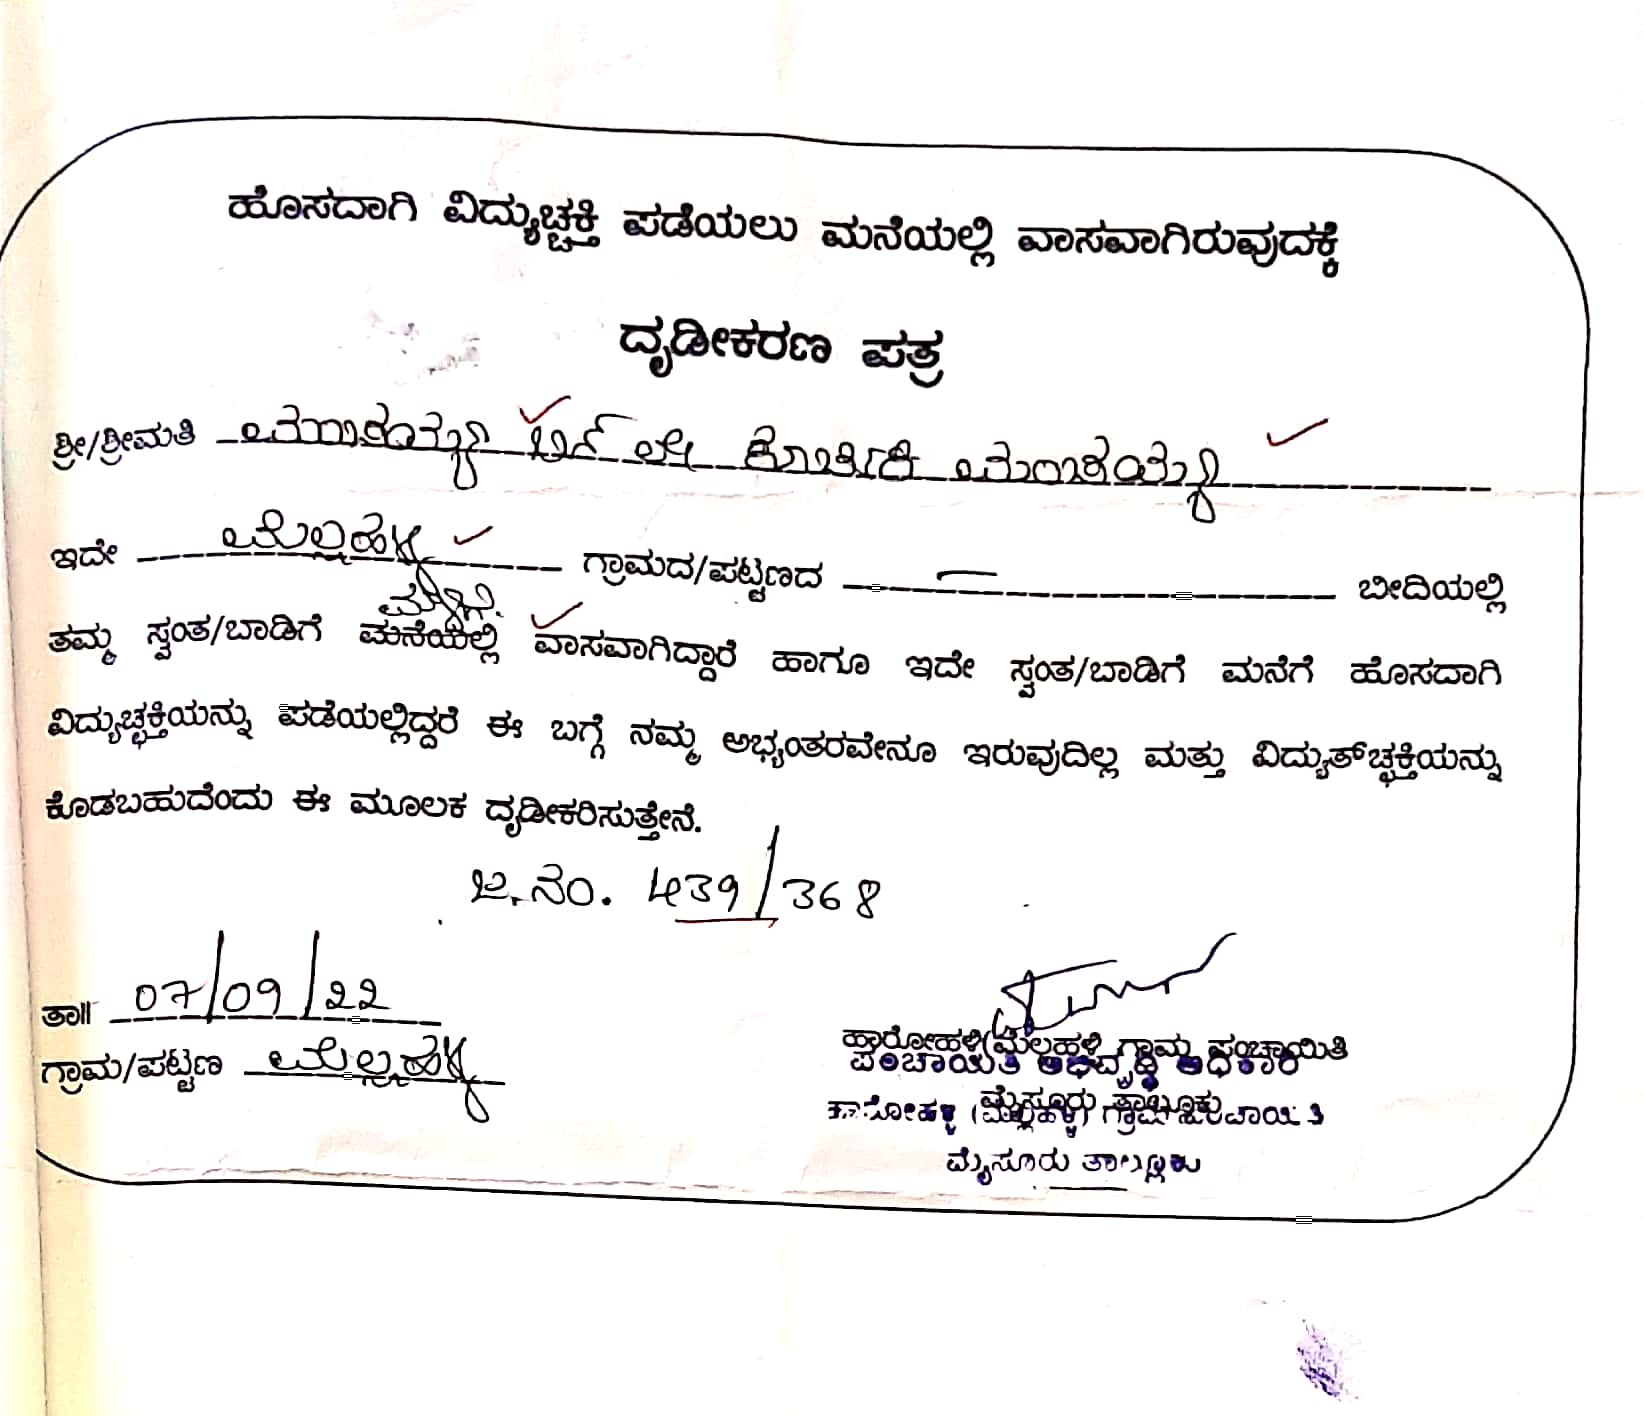 ಹೊಸದಾಗಿ ವಿದ್ಯುಚ್ಛಕ್ತಿ ಪಡೆಯಲು ಮನೆಯಲ್ಲಿ ವಾಸವಾಗಿರುವುದಕ್ಕೆ
ದೃಡೀಕರಣ ಪತ್ರ
ಶ್ರೀ/ಶ್ರೀಮತಿ ಬಿನ್ ಲೇ
ಇದೇ ಮೆಲ್ಲಹಳ್ಳಿ ಗ್ರಾಮದ/ಪಟ್ಟಣದ — ಬೀದಿಯಲ್ಲಿ
ತಮ್ಮ ಸ್ವಂತ/ಬಾಡಿಗೆ ಮನೆಯಲ್ಲಿ ವಾಸವಾಗಿದ್ದಾರೆ ಹಾಗೂ ಇದೇ ಸ್ವಂತ/ಬಾಡಿಗೆ ಮನೆಗೆ ಹೊಸದಾಗಿ
ವಿದ್ಯುಚ್ಛಕ್ತಿಯನ್ನು ಪಡೆಯಲ್ಲಿದ್ದರೆ ಈ ಬಗ್ಗೆ ನಮ್ಮ ಅಭ್ಯಂತರವೇನೂ ಇರುವುದಿಲ್ಲ ಮತ್ತು ವಿದ್ಯುತ್‌ಚ್ಛಕ್ತಿಯನ್ನು
ಕೊಡಬಹುದೆಂದು ಈ ಮೂಲಕ ದೃಡೀಕರಿಸುತ್ತೇನೆ.
ಖ.ನಂ. 439/368
ತಾ॥ 07/09/22
ಗ್ರಾಮ/ಪಟ್ಟಣ ಮೆಲ್ಲಹಳ್ಳಿ
ಹಾರೋಹಳ್ಳಿ(ಮೆಲ್ಲಹಳ್ಳಿ) ಗ್ರಾಮ ಪಂಚಾಯಿತಿ
ಪಂಚಾಯಿತಿ ಅಭಿವೃದ್ಧಿ ಅಧಿಕಾರಿ
ಮೈಸೂರು ತಾಲ್ಲೂಕು
ಹಾರೋಹಳ್ಳಿ (ಮೆಲ್ಲಹಳ್ಳಿ) ಗ್ರಾಮ ಪಂಚಾಯಿತಿ
ಮೈಸೂರು ತಾಲ್ಲೂಕು